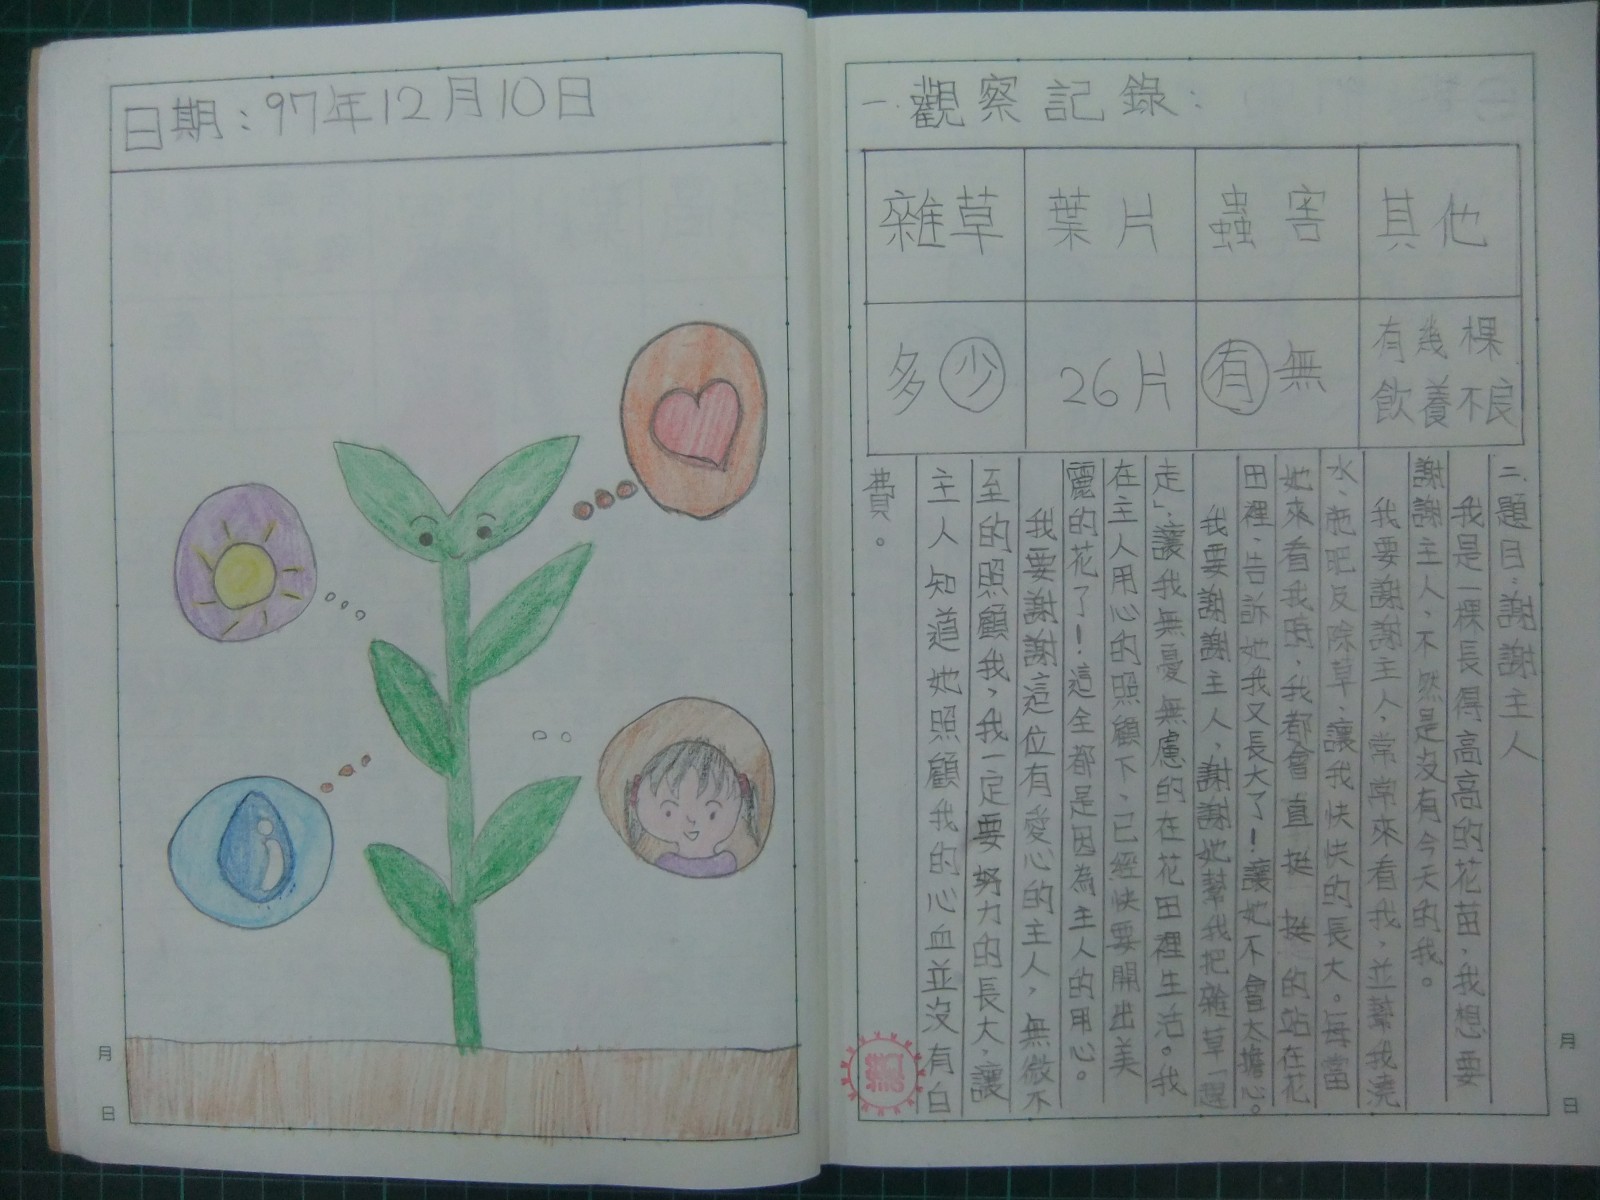 日期：97年12月10日
一.觀察記錄：
雜草 葉片 蟲害 其他
多少 26片 有無 有幾棵飲養不良
二.題目:謝謝主人
我是一棵長得高高的花苗,我想要
謝謝主人,不然是沒有今天的我。
我要謝謝主人,常常來看我,並幫我澆
水、施肥及除草,讓我快快的長大。每當
她來看我時,我都會直挺挺的站在花
田裡,告訴她我又長大了!讓她不會太擔心。
我要謝謝主人,謝謝她幫我把雜草「趕
走」,讓我無憂無慮的在花田裡生活。我
在主人用心的照顧下,已經快要開出美
麗的花了!這全都是因為主人的用心。
我要謝謝這位有愛心的主人,無微不
至的照顧我,我一定要努力的長大,讓
主人知道她照顧我的心血並沒有白
費。
月
日
月
日